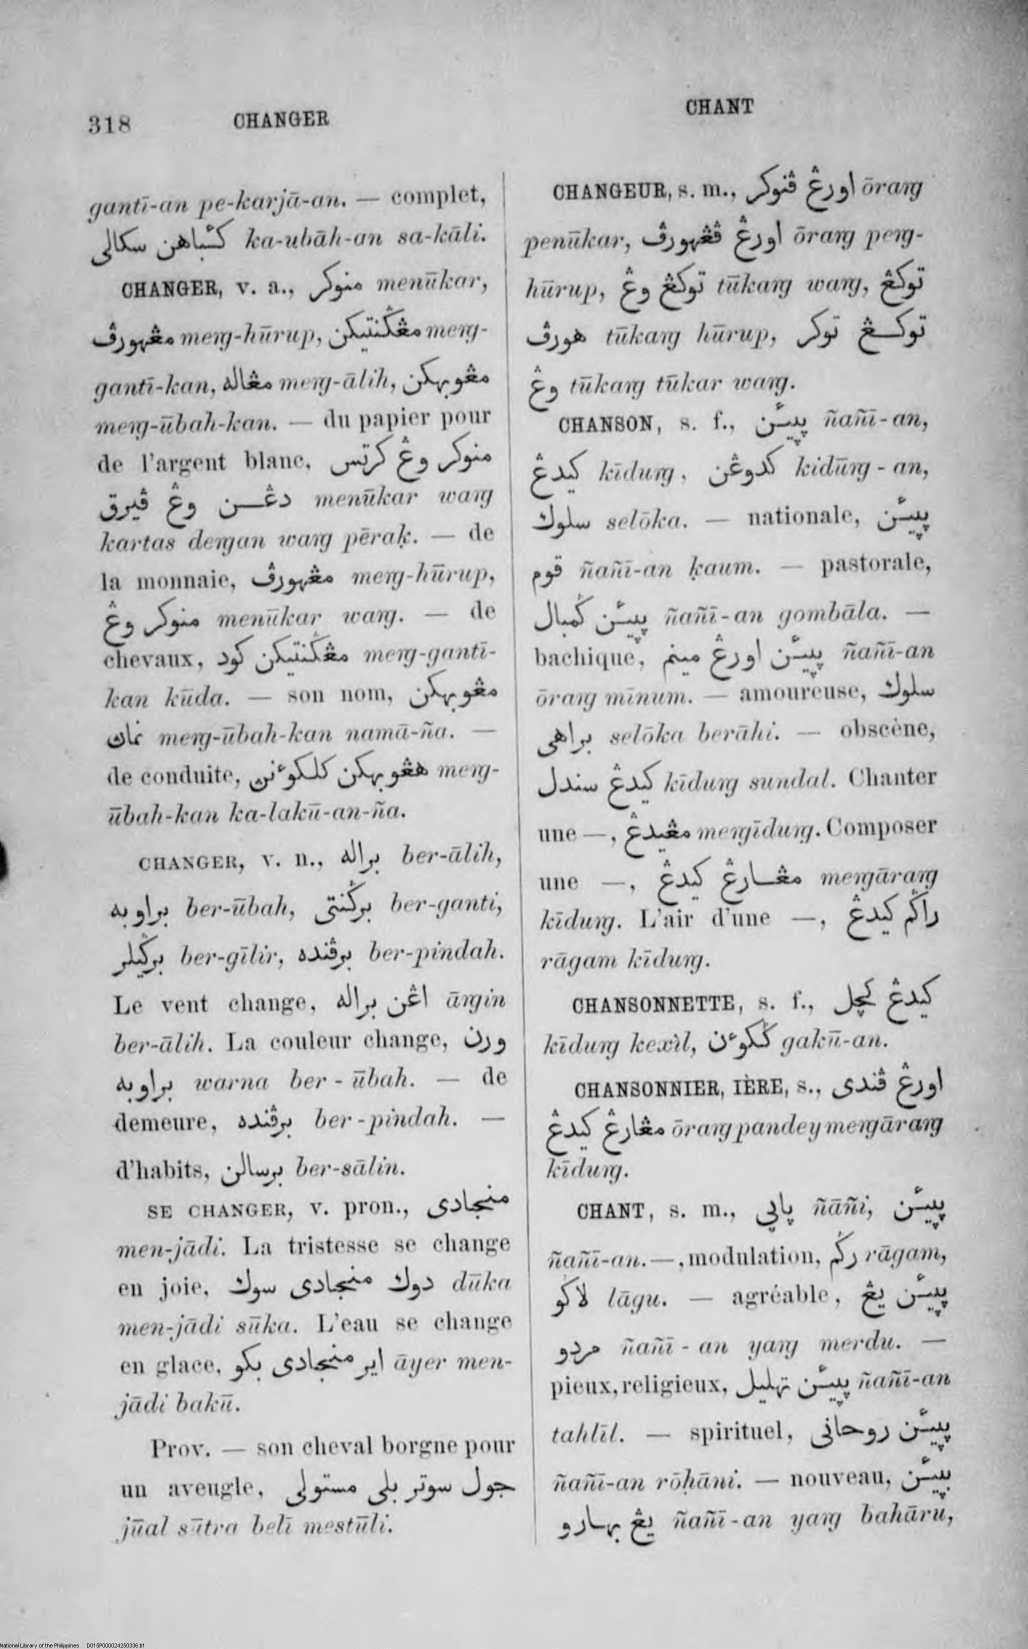 318
CHANGER
CHANT
gantī-an pe-karjā-an. — complet,
كأُباهن سكالي ka-ubāh-an sa-kāli.
CHANGER, v. a., منوكر menūkar,
مڠهورڤ merg-hūrup, مڠݢنتيكن merg-
gantī-kan, مڠاله merg-ālih, مڠوبهكن
merg-ūbah-kan. — du papier pour
de l'argent blanc, منوكر وڠ كرتس
دڠـن وڠ ڤيرق menūkar warg
kartas dergan warg pēraḳ. — de
la monnaie, مڠهورڤ merg-hūrup,
منوكر وڠ menūkar warg. — de
chevaux, مڠݢنتيكن كود merg-gantī-
kan kūda. — son nom, مڠوبهكن
نماڽ merg-ūbah-kan namā-ña. —
de conduite, مڠوبهكن كلكوءنڽ merg-
ūbah-kan ka-lakū-an-ña.
CHANGER, v. n., براله ber-ālih,
براوبه ber-ūbah, برݢنتي ber-ganti,
برݢيلر ber-gīlir, برڤنده ber-pindah.
Le vent change, اڠن براله ārgin
ber-ālih. La couleur change, ورن
براوبه warna ber-ūbah. — de
demeure, برڤنده ber-pindah. —
d'habits, برسالن ber-sālin.
SE CHANGER, v. pron., منجادى
men-jādi. La tristesse se change
en joie, دوك منجادى سوك dūka
men-jādi sūka. L'eau se change
en glace, اير منجادى بكو āyer men-
jādi bakū.
Prov. — son cheval borgne pour
un aveugle, جول سوتر بلى مستولى
jūal sūtra belī mestūli.
CHANGEUR, s. m., اورڠ ڤنوكر ōrarg
penūkar, اورڠ ڤڠهورڤ ōrarg perg-
hūrup, توكڠ وڠ tūkarg warg, توكڠ
هورڤ tūkarg hūrup, توكـڠ توكر
وڠ tūkarg tūkar warg.
CHANSON, s. f., ڽڽئن ñañī-an,
كيدڠ kīdurg, كدوڠن kidūrg-an,
سلوك selōka. — nationale, ڽڽئن
قوم ñañī-an ḳaum. — pastorale,
ڽڽئن ݢمبال ñañī-an gombāla. —
bachique, ڽڽئن اورڠ مينم ñañī-an
ōrarg mīnum. — amoureuse, سلوك
براهى selōka berāhi. — obscène,
كيدڠ سندل kīdurg sundal. Chanter
une —, مڠيدڠ mergīdurg. Composer
une —, مڠـارڠ كيدڠ mergārarg
kīdurg. L'air d'une —, راݢم كيدڠ
rāgam kīdurg.
CHANSONNETTE, s. f., كيدڠ كچل
kīdurg kexìl, ݢكوءن gakū-an.
CHANSONNIER, IÈRE, s., اورڠ ڤندى
مڠارڠ كيدڠ ōrarg pandey mergārarg
kīdurg.
CHANT, s. m., ڽاڽي ñāñi, ڽڽئن
ñañī-an. —, modulation, رݢم rāgam,
لاݢو lāgu. — agréable, ڽڽئن يڠ
مردو ñañī-an yarg merdu. —
pieux, religieux, ڽڽئن تهليل ñañī-an
tahlīl. — spirituel, ڽڽئن روحانى
ñañī-an rōḥāni. — nouveau, ڽڽئن
يڠ بهـارو ñañī-an yarg bahāru,
National Library of the Philippines